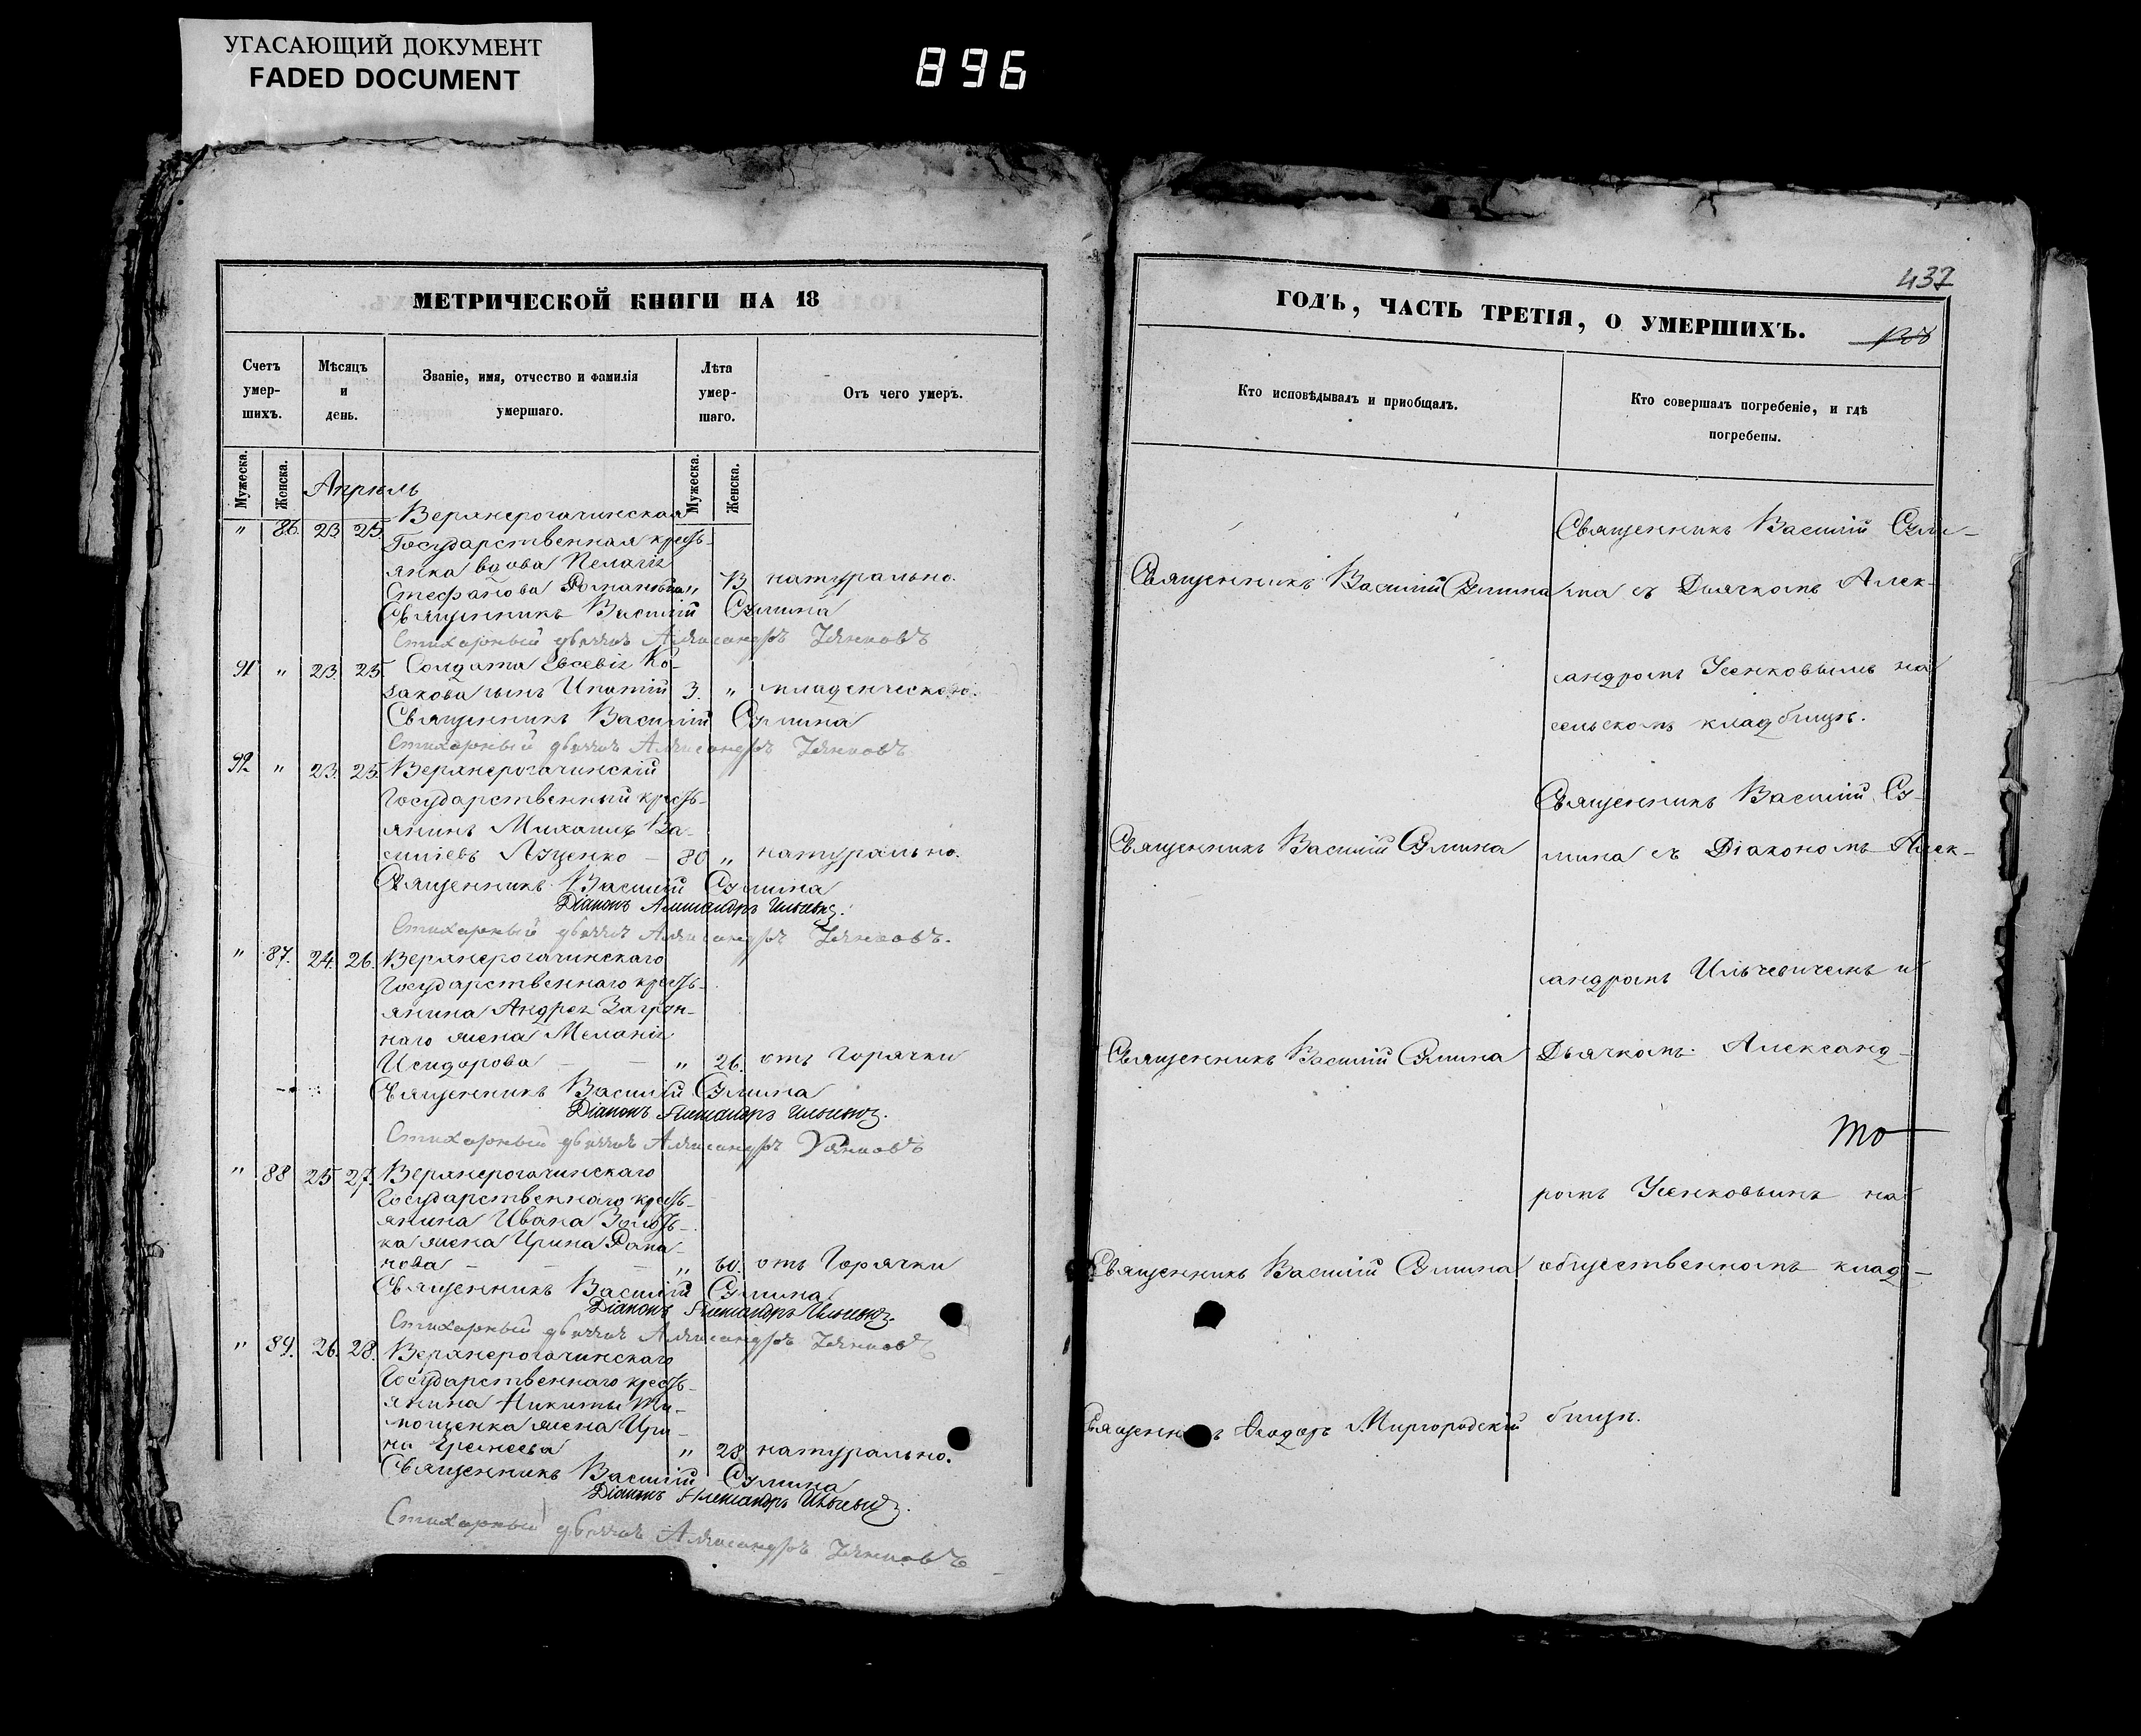 УГАСАЮЩИЙ ДОКУМЕНТ
FADED DOCUMENT
896
МЕТРИЧЕСКОЙ КНИГИ НА 18
Счетъ умер-шихъ.
Мѣсяцъ и день.
Званіе, имя, отчество и фамилія умершаго.
Лѣта умер-шаго.
Отъ чего умеръ.
Мужеска. Женска.
Мужеска. Женска.
Апрѣль
Верхнерогачинская
" 86. 23 25. Государственная кресть-
янка вдова Пелагія
Стефанова Романьков " 73 натурально.
Священникъ Василій Сулима
Стихарный дьячокъ Александръ Усенковъ
91 " 23. 25. Солдата Евсевія Ко-
закова сынъ Ипатій 3. " младенческою.
Священникъ Василій Сулима
Стихарный дьячокъ Александръ Усенковъ
92 " 23. 25. Верхнерогачинскій
Государственный кресть-
янинъ Михаилъ Ва-
силіевъ Луценко – 80 " натурально.
Священникъ Василій Сулима
Діаконъ Александръ Ильчевичъ.
Стихарный дьячокъ Александръ Усенковъ.
" 87. 24. 26. Верхнерогачинскаго
Государственнаго кресть-
янина Андрея
наго жена Меланія
Исидорова – – " 26. отъ горячки
Священникъ Василій Сулима
Діаконъ Александръ Ильчевичъ.
Стихарный дьячокъ Александръ Усенковъ
" 88 25 27. Верхнерогачинскаго
Государственнаго кресть-
янина Ивана
ка жена Ирина Рома-
нова – – – " 60. отъ горячки
Священникъ Василій Сулима
Діаконъ Александръ Ильчевичъ.
Стихарный дьячокъ Александръ Усенковъ
" 89. 26. 28. Верхнерогачинскаго
Государственнаго кресть-
янина Никиты Ти-
мощенка жена Ири-
на Еремеева " 28 натурально.
Священникъ Василій Сулима
Діаконъ Александръ Ильчевичъ.
Стихарный дьячокъ Александръ Усенковъ
437
ГОДЪ, ЧАСТЬ ТРЕТІЯ, О УМЕРШИХЪ.
Кто исповѣдывалъ и приобщалъ.
Кто совершалъ погребеніе, и гдѣ погребены.
Священникъ Василій Сули-
Священникъ Василій Сулима
ма съ Дьячкомъ Алек-
сандромъ Усенковымъ на
сельскомъ кладбищѣ.
Священникъ Василій Су-
Священникъ Василій Сулима
лима съ Діакономъ Алек-
сандромъ Ильчевичемъ и
Священникъ Василій Сулима
Дьячкомъ Александ-
ромъ Усенковымъ на
Священникъ Василій Сулима
общественномъ клад-
Священникъ Ѳеодоръ Миргородскій
бищѣ.